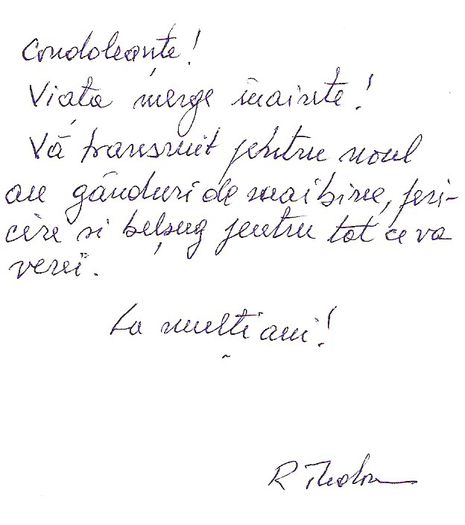 Condoleanțe!
Viața merge înainte!
Vă transmit pentru noul
an gânduri de mai bine, feri-
cire și belșug pentru tot ce va
veni.
La mulți ani!
R